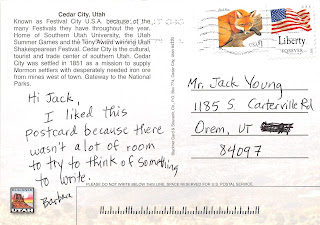 Cedar City, Utah
Known as Festival City U.S.A. because of the
many Festivals they have throughout the year,
Home of Southern Utah University, the Utah
Summer Games and the Tony Award winning Utah
Shakespearean Festival. Cedar City is the cultural,
tourist and trade center of southern Utah. Cedar
City was settled in 1851 as a mission to supply
Mormon settlers with desperately needed iron ore
from mines west of town. Gateway to the National
Parks.
Hi Jack,
I liked this
postcard because there
wasn't alot of room
to try to think of something
to write.
Barbara
UTAH
USA
Liberty
FOREVER
Mr. Jack Young
1185 S Carterville Rd
Orem, UT
84097
PLEASE DO NOT WRITE BELOW THIS LINE. SPACE RESERVED FOR U.S. POSTAL SERVICE.